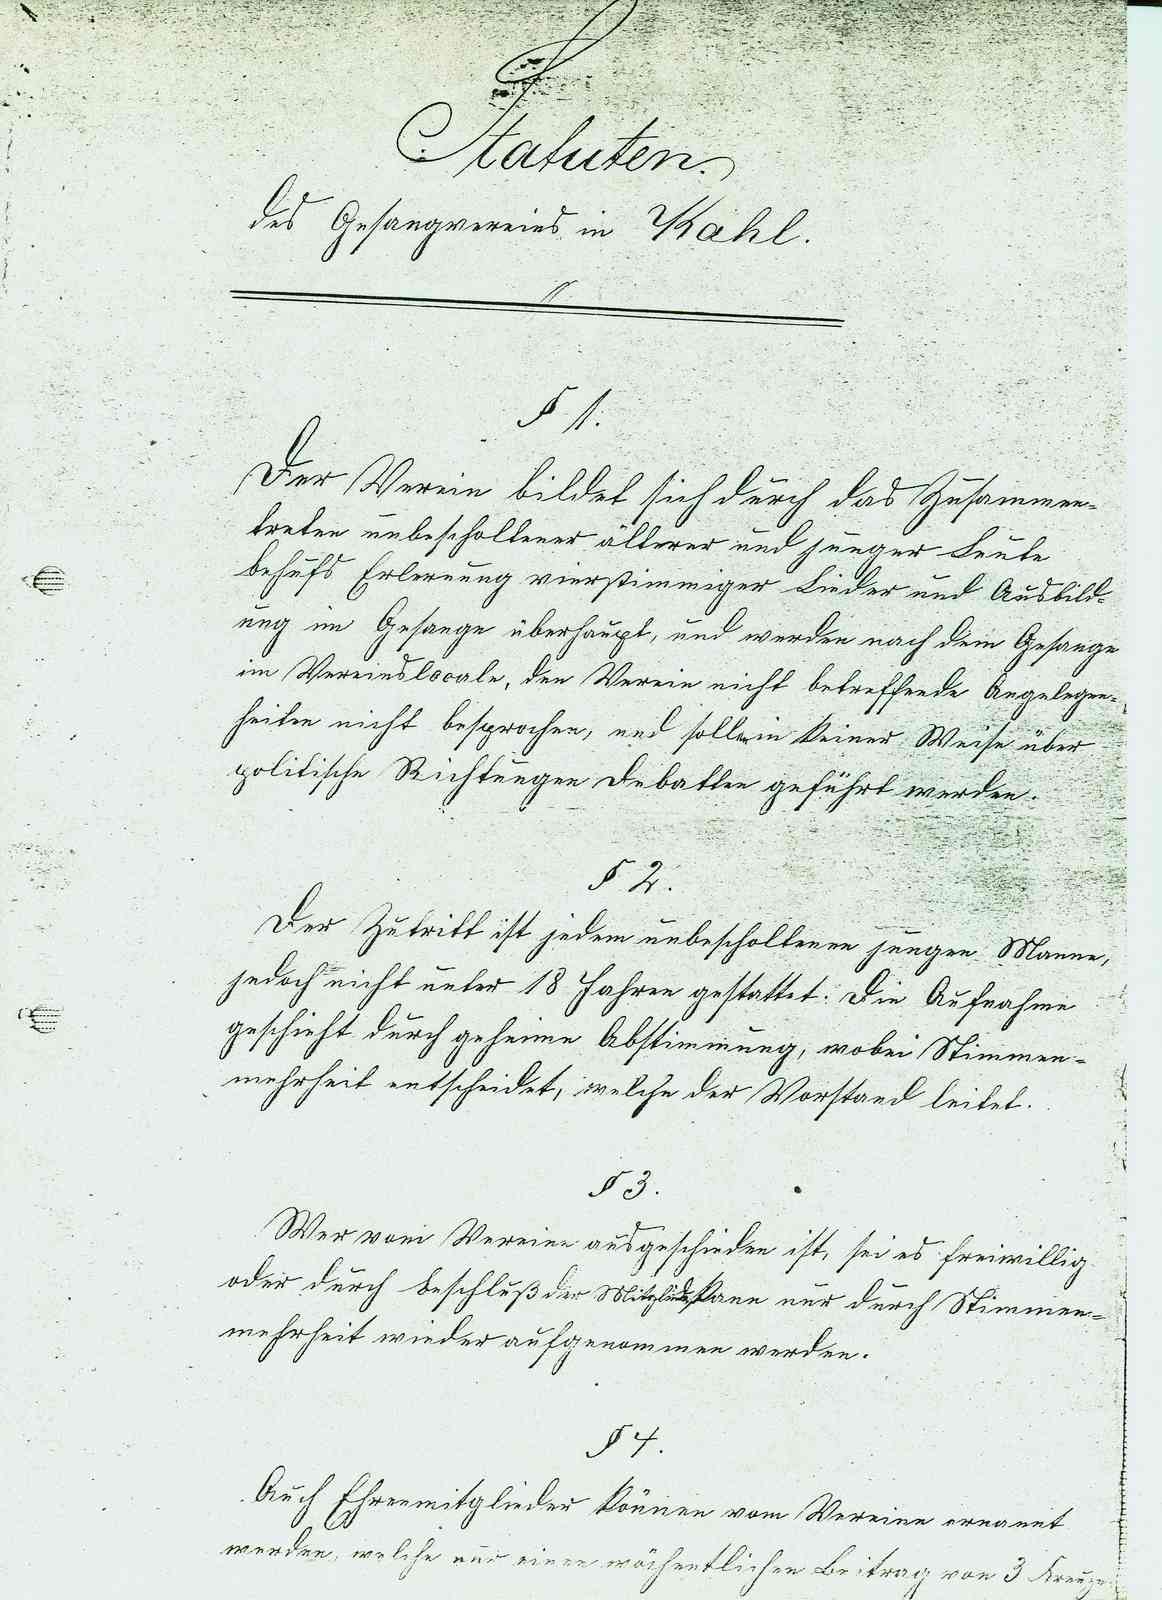 Statuten.
des Gesangvereins in Kahl.
§ 1.
Der Verein bildet sich durch das Zusammen-
treten unbescholtener älterer und junger Leute
behufs Erlernung vierstimmiger Lieder und Ausbild-
ung im Gesange überhaupt, und werden nach dem Gesange
im Vereinslocale, den Verein nicht betreffende Angelegen-
heiten nicht besprochen, und sollen in keiner Weise über
politische Richtungen Debatten geführt werden.
§ 2.
Der Zutritt ist jedem unbescholtenen jungen Manne,
jedoch nicht unter 18 Jahren gestattet. Die Aufnahme
geschieht durch geheime Abstimmung, wobei Stimmen-
mehrheit entscheidet, welche der Vorstand leitet.
§ 3.
Wer vom Vereine ausgeschieden ist, sei es freiwillig
oder durch beschluß der Mitglieder kann nur durch Stimmen-
mehrheit wieder aufgenommen werden.
§ 4.
Auch Ehrenmitglieder können vom Vereine ernannt
werden, welche nur einen wöchentlichen Beitrag von 3 Kreuzer